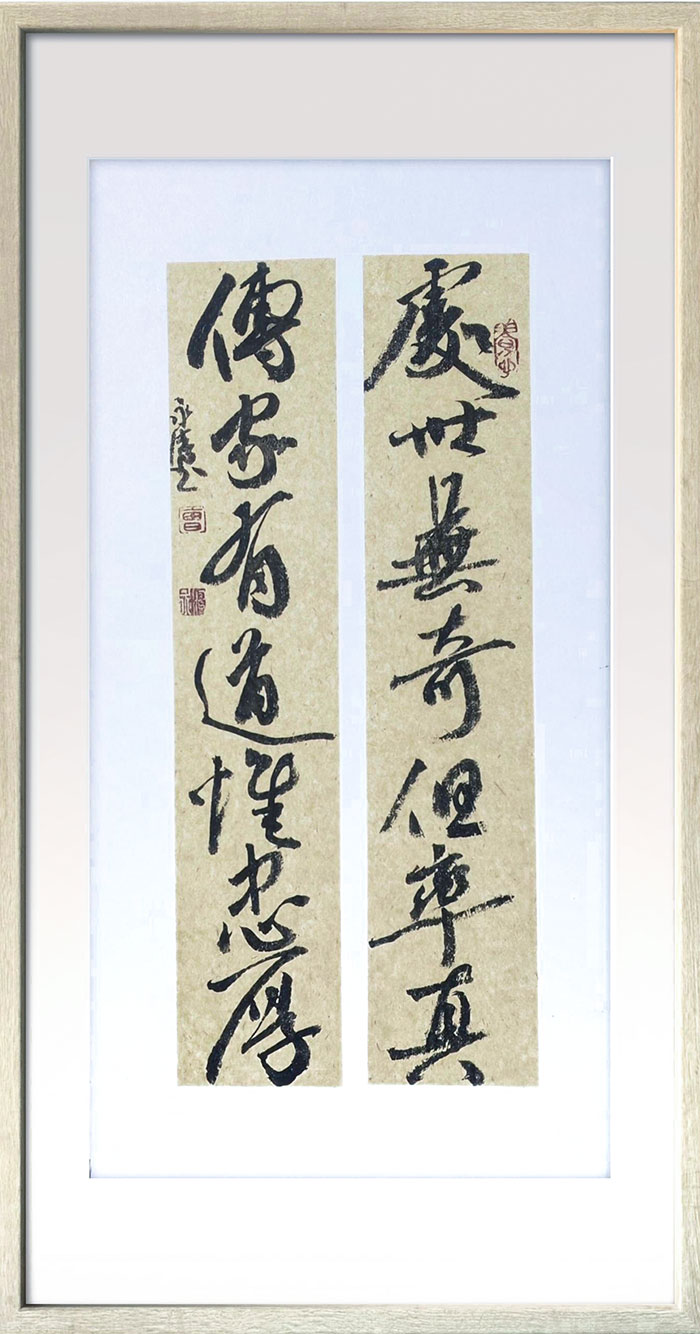 處世無奇但率真
傳家有道惟忠厚